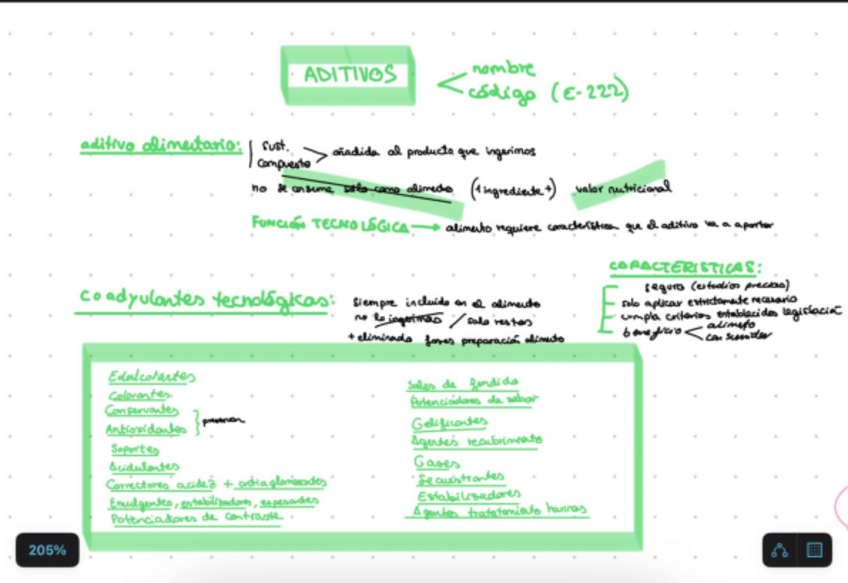 ADITIVOS
nombre
código (E-222)
aditivo alimentario:
sust.
compuesto
añadida al producto que ingerimos
no se consume solo como alimento (1 ingrediente +) valor nutricional
FUNCIÓN TECNOLÓGICA → alimento requiere característica que el aditivo va a aportar
CARACTERISTICAS:
seguro (estudios precisos)
solo aplicar estrictamente necesario
cumpla criterios establecidos legislación
beneficio
alimento
consumidor
Coadyuvantes tecnológicos:
siempre incluido en el alimento
no lo ingerimos / solo restos
+ eliminado fases preparación alimento
Edulcorantes
Colorantes
Conservantes
Antioxidantes
Soportes
Acidulantes
Correctores acidez + antiaglomerantes
Emulgentes, estabilizadores, espesantes
Potenciadores de contraste
Sales de fundido
Potenciadores de sabor
Gelificantes
Agentes recubrimiento
Gases
Secuestrantes
Estabilizadores
Agentes tratatamiento harinas
205%